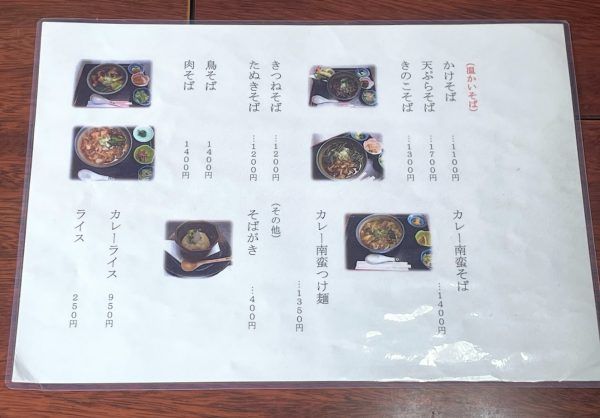 (温かいそば)
かけそば …1100円
天ぷらそば …1700円
きのこそば …1300円
きつねそば …1200円
たぬきそば …1200円
鳥そば 1400円
肉そば 1400円
カレー南蛮そば …1400円
カレー南蛮つけ麺 …1350円
(その他)
そばがき …400円
カレーライス 950円
ライス 250円